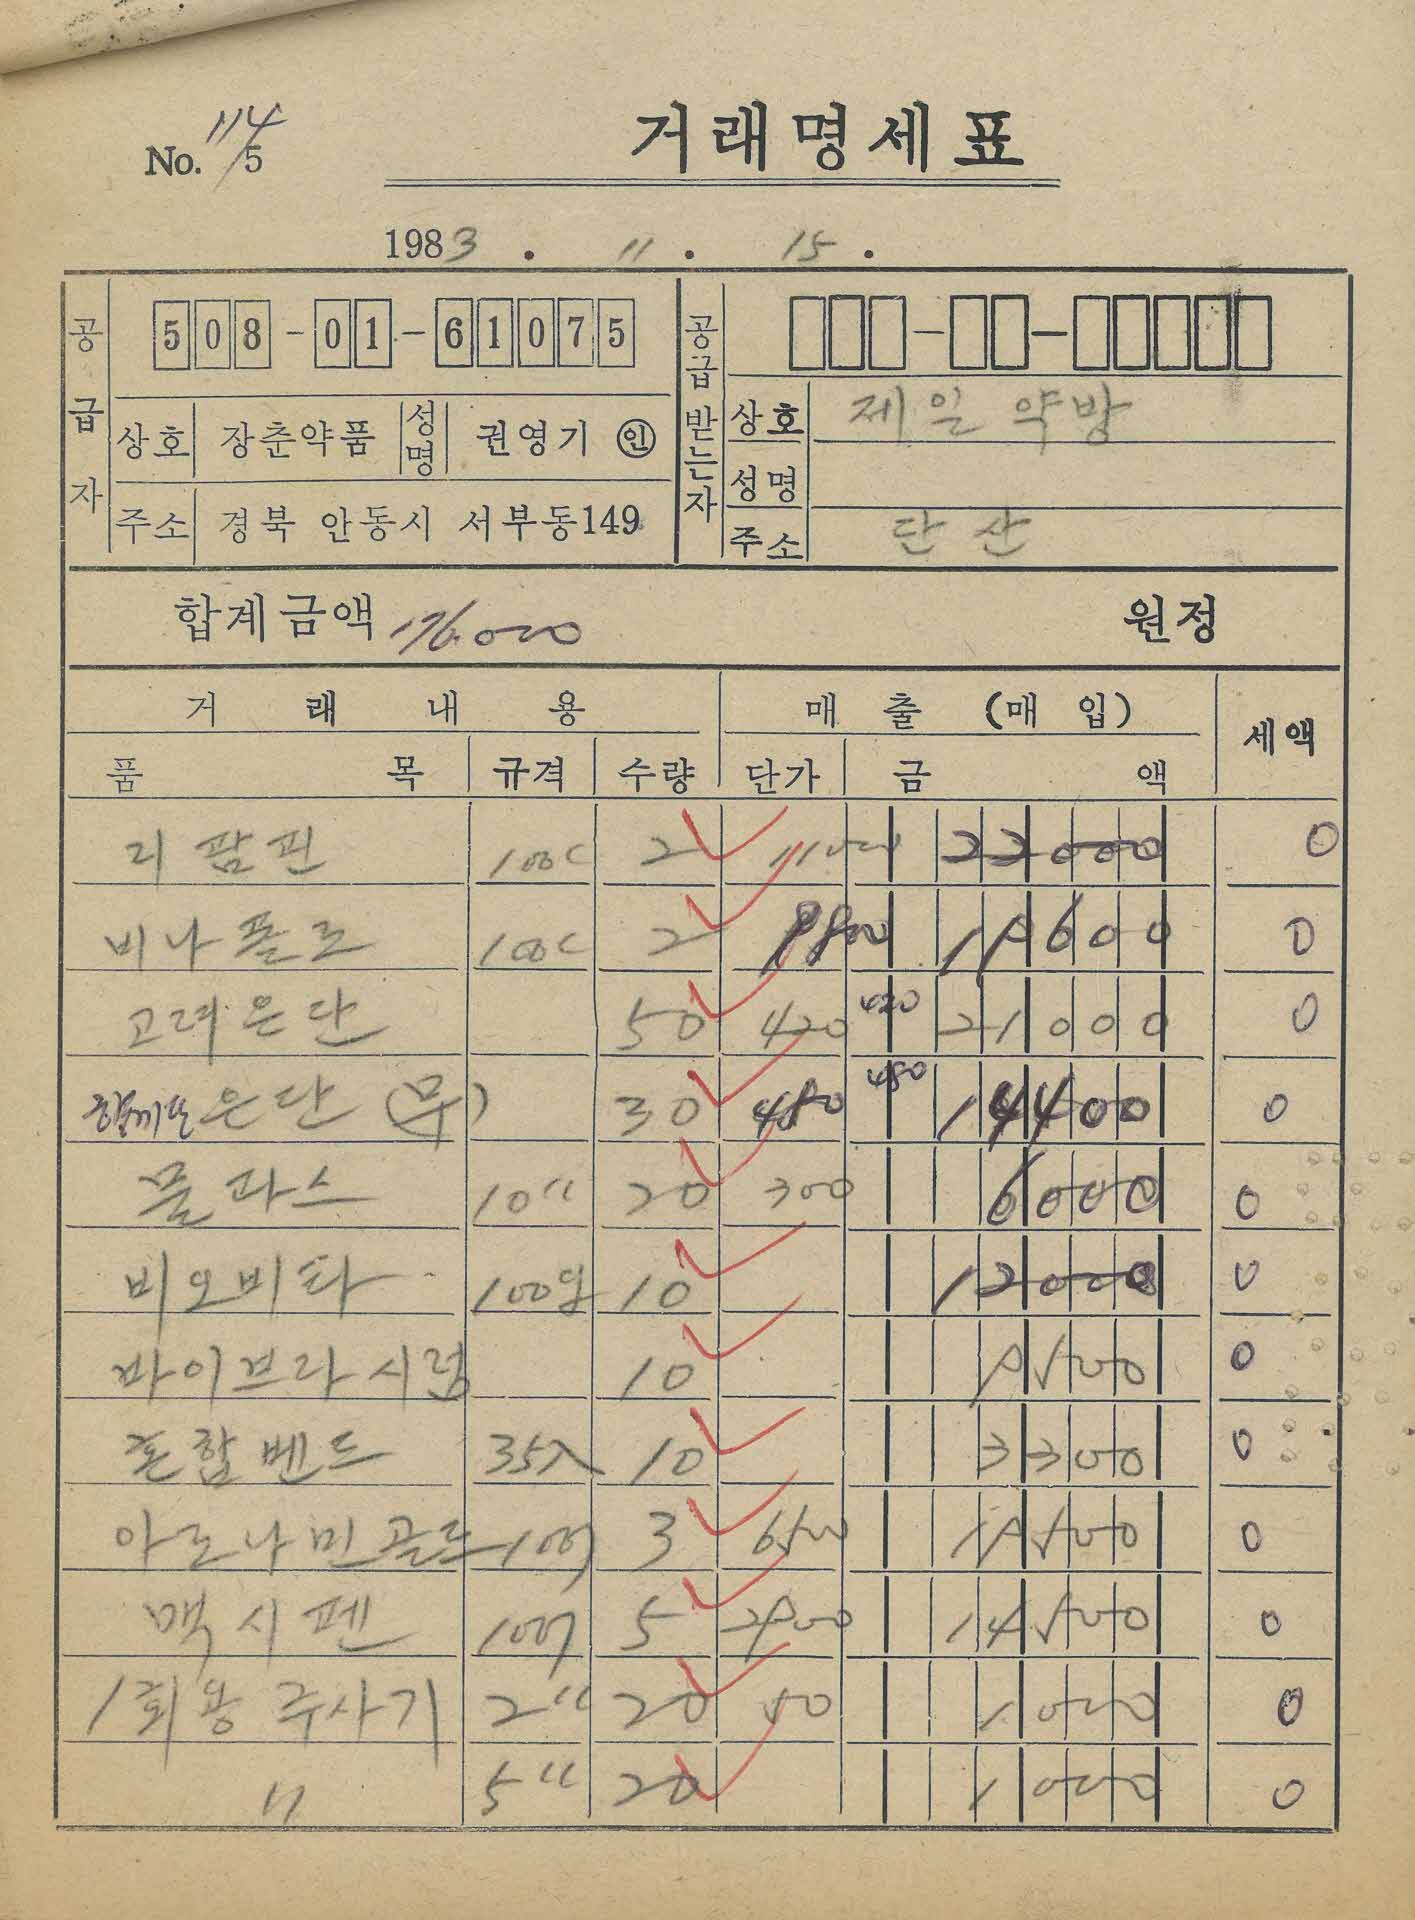 No. 114/5
거래명세표
1983 . 11 . 15 .
공급자
508-01-61075
상호 장춘약품 성명 권영기 ㊞
주소 경북 안동시 서부동149
공급받는자
상호 제일약방
성명
주소 단산
합계금액 원정
거래내용 매출 (매입) 세액
품목 규격 수량 단가 금액
리팜핀 100C 2 11000 22000 0
비나폴로 100C 2 9800 19600 0
고려은단 50 420 420 21000 0
은단 30 480 480 14400 0
물파스 10" 20 300 6000 0
비오비타 10 12000 0
바이브라시럽 10 9500 0
혼합벤드 35入 10 3300 0
아로나민골드 100T 3 6500 19500 0
맥시펜 100T 5 2900 14500 0
1회용주사기 2" 20 50 1000 0
" 5" 20 1000 0